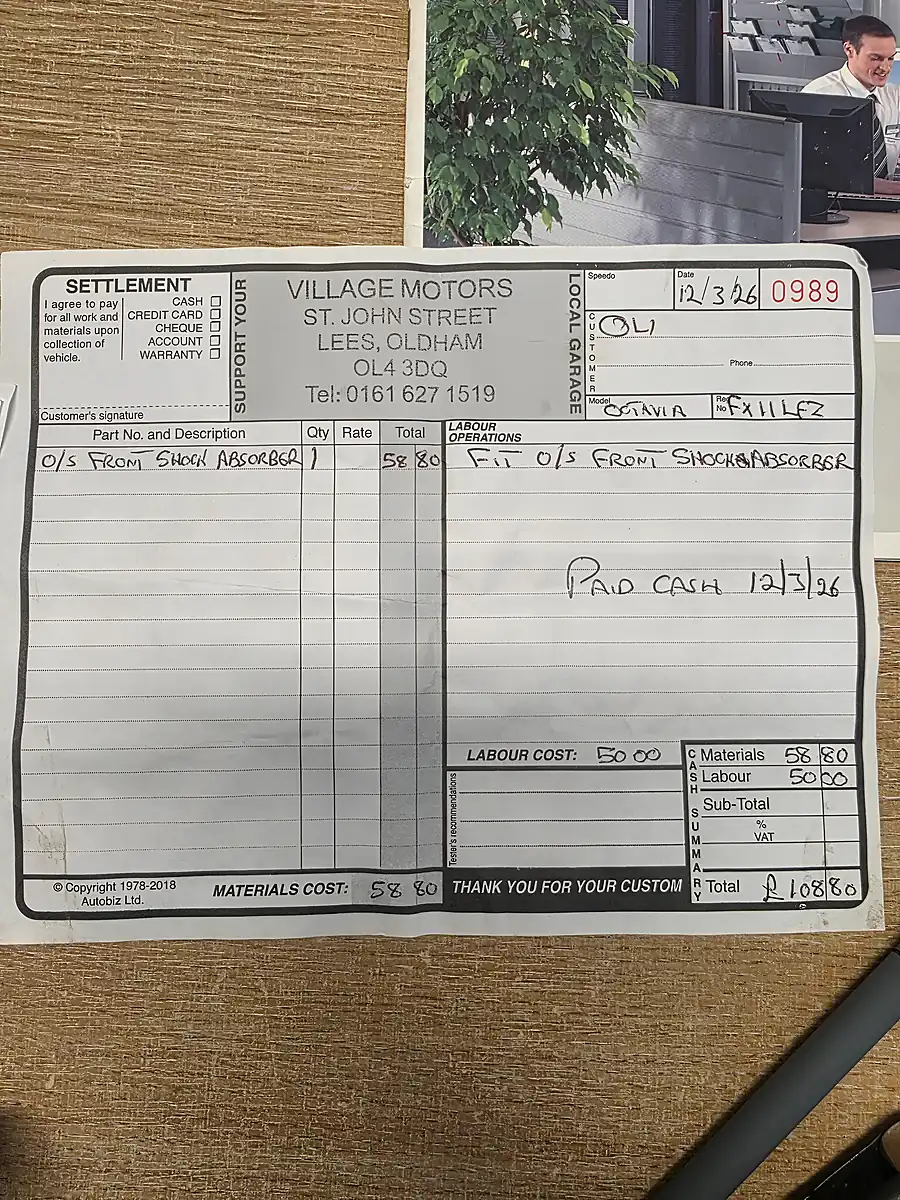 SETTLEMENT
I agree to pay
for all work and
materials upon
collection of
vehicle.
CASH
CREDIT CARD
CHEQUE
ACCOUNT
WARRANTY
Customer's signature
SUPPORT YOUR
VILLAGE MOTORS
ST. JOHN STREET
LEES, OLDHAM
OL4 3DQ
Tel: 0161 627 1519
LOCAL GARAGE
Speedo
Date
12/3/26
0989
CUSTOMER
OLI
Phone
Model
OCTAVIA
Reg
No
FX11LFZ
Part No. and Description Qty Rate Total
O/S FRONT SHOCK ABSORBER 1 58 80
LABOUR
OPERATIONS
FIT O/S FRONT SHOCK ABSORBER
PAID CASH 12/3/26
LABOUR COST: 50 00
Tester's recommendations
CASH SUMMARY
Materials 58 80
Labour 50 00
Sub-Total
%
VAT
Total £108 80
© Copyright 1978-2018
Autobiz Ltd.
MATERIALS COST: 58 80
THANK YOU FOR YOUR CUSTOM